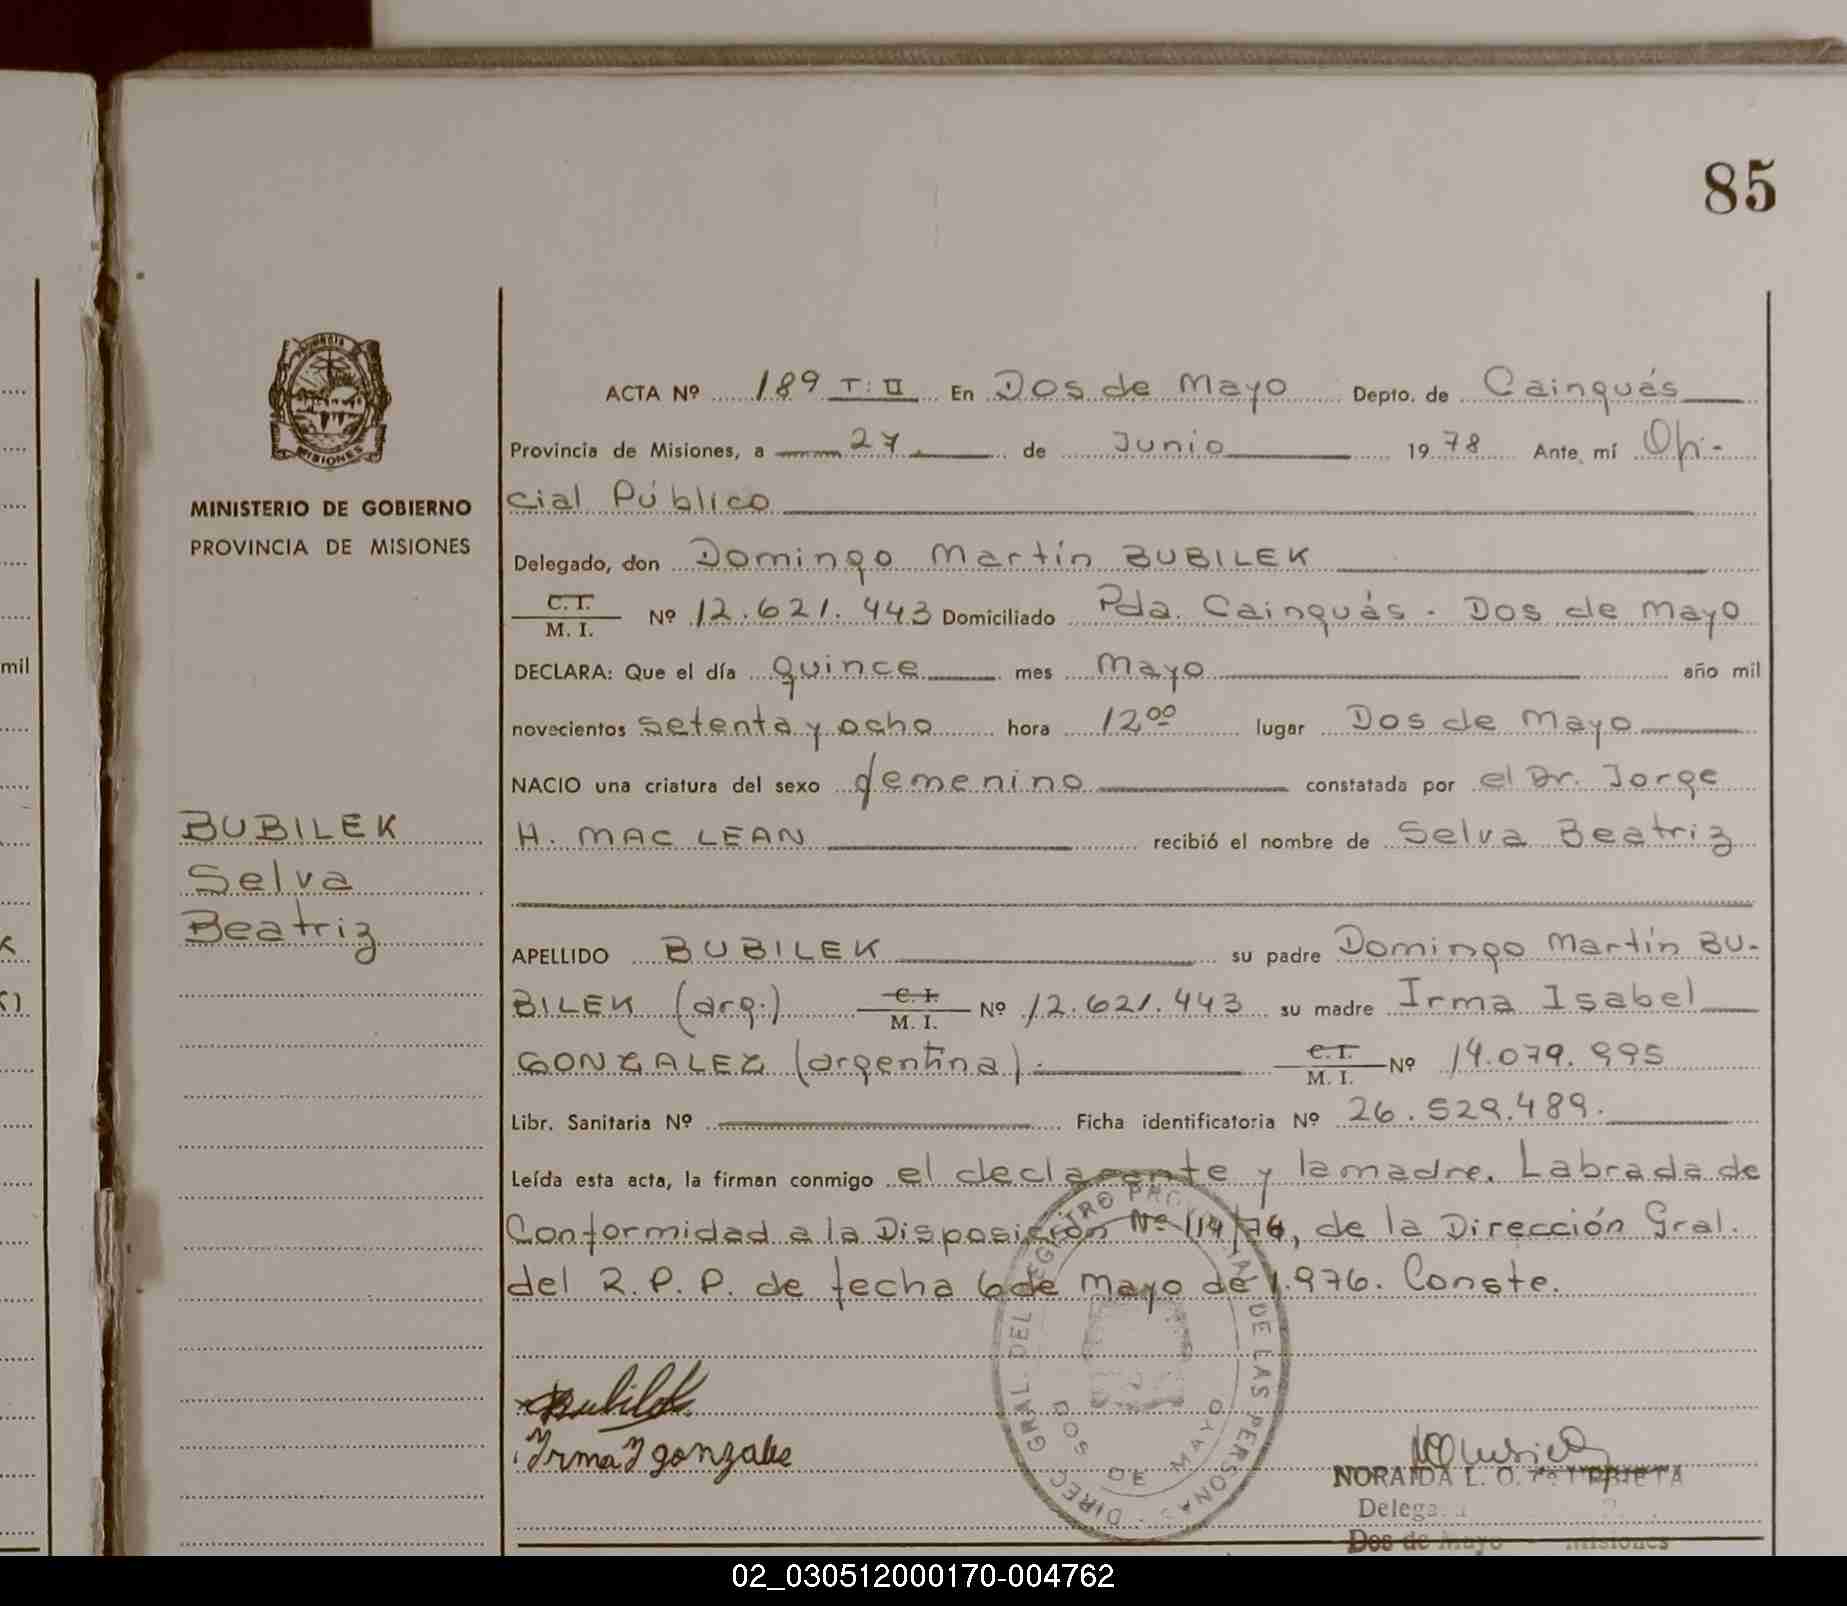 85
PROVINCIA DE
MISIONES
MINISTERIO DE GOBIERNO
PROVINCIA DE MISIONES
BUBILEK
Selva
Beatriz
ACTA Nº 189 T: II En Dos de Mayo Depto. de Cainquás
Provincia de Misiones, a 27 de Junio 1978 Ante mí Ofi-
cial Público
Delegado, don Domingo Martín BUBILEK
C. I.
M. I. Nº 12.621.443 Domiciliado Pda. Cainquás - Dos de Mayo
DECLARA: Que el día quince mes Mayo año mil
novecientos setenta y ocho hora 12⁰⁰ lugar Dos de Mayo
NACIO una criatura del sexo femenino constatada por el Dr. Jorge
H. MAC LEAN recibió el nombre de Selva Beatriz
APELLIDO BUBILEK su padre Domingo Martín BU-
BILEK (arg.) C. I. M. I. Nº 12.621.443 su madre Irma Isabel
GONZALEZ (argentina). C. I. M. I. Nº 14.079.995
Libr. Sanitaria Nº Ficha identificatoria Nº 26.529.489.
Leída esta acta, la firman conmigo el declarante y la madre. Labrada de
Conformidad a la Disposición Nº 114/76, de la Dirección Gral.
del R.P.P. de fecha 6 de Mayo de 1.976. Conste.
DIREC. GRAL. DEL REGISTRO DE LAS PERSONAS
DOS DE MAYO
Bubilek
Irma I gonzalez
NORAIDA L. O.
Delega
Dos de Mayo - Misiones
mil
K
02_030512000170-004762